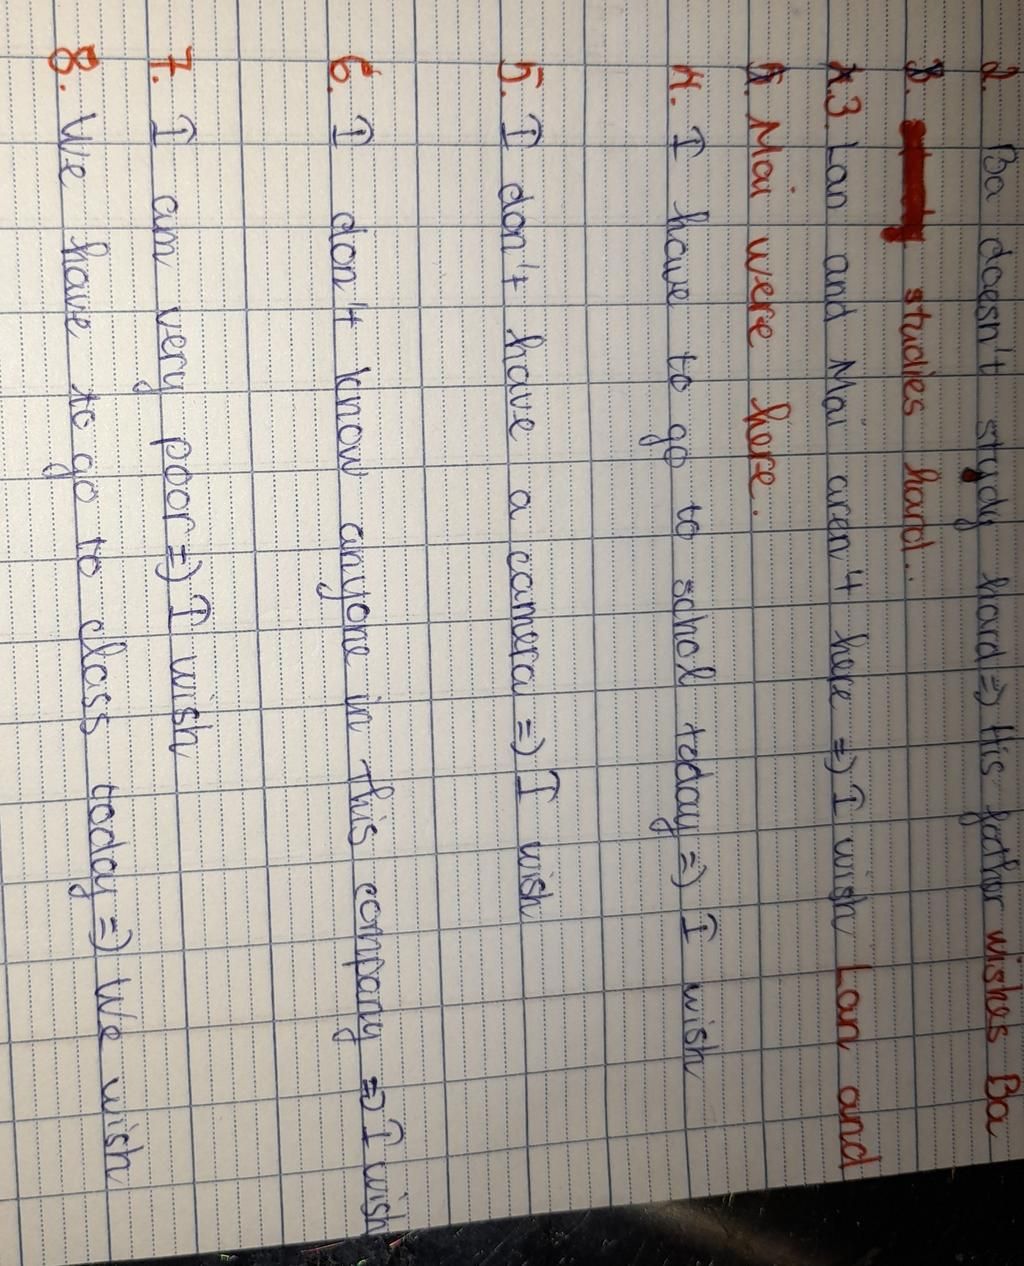 2. Ba doesn't study hard => His father wishes Ba
3. studies hard..
3. Lan and Mai aren't here => I wish Lan and
Mai were here.
4. I have to go to schol today => I wish
5. I don't have a camera => I wish
6. I don't know anyone in this company => I wish
7. I am very poor => I wish
8. We have to go to class today => We wish